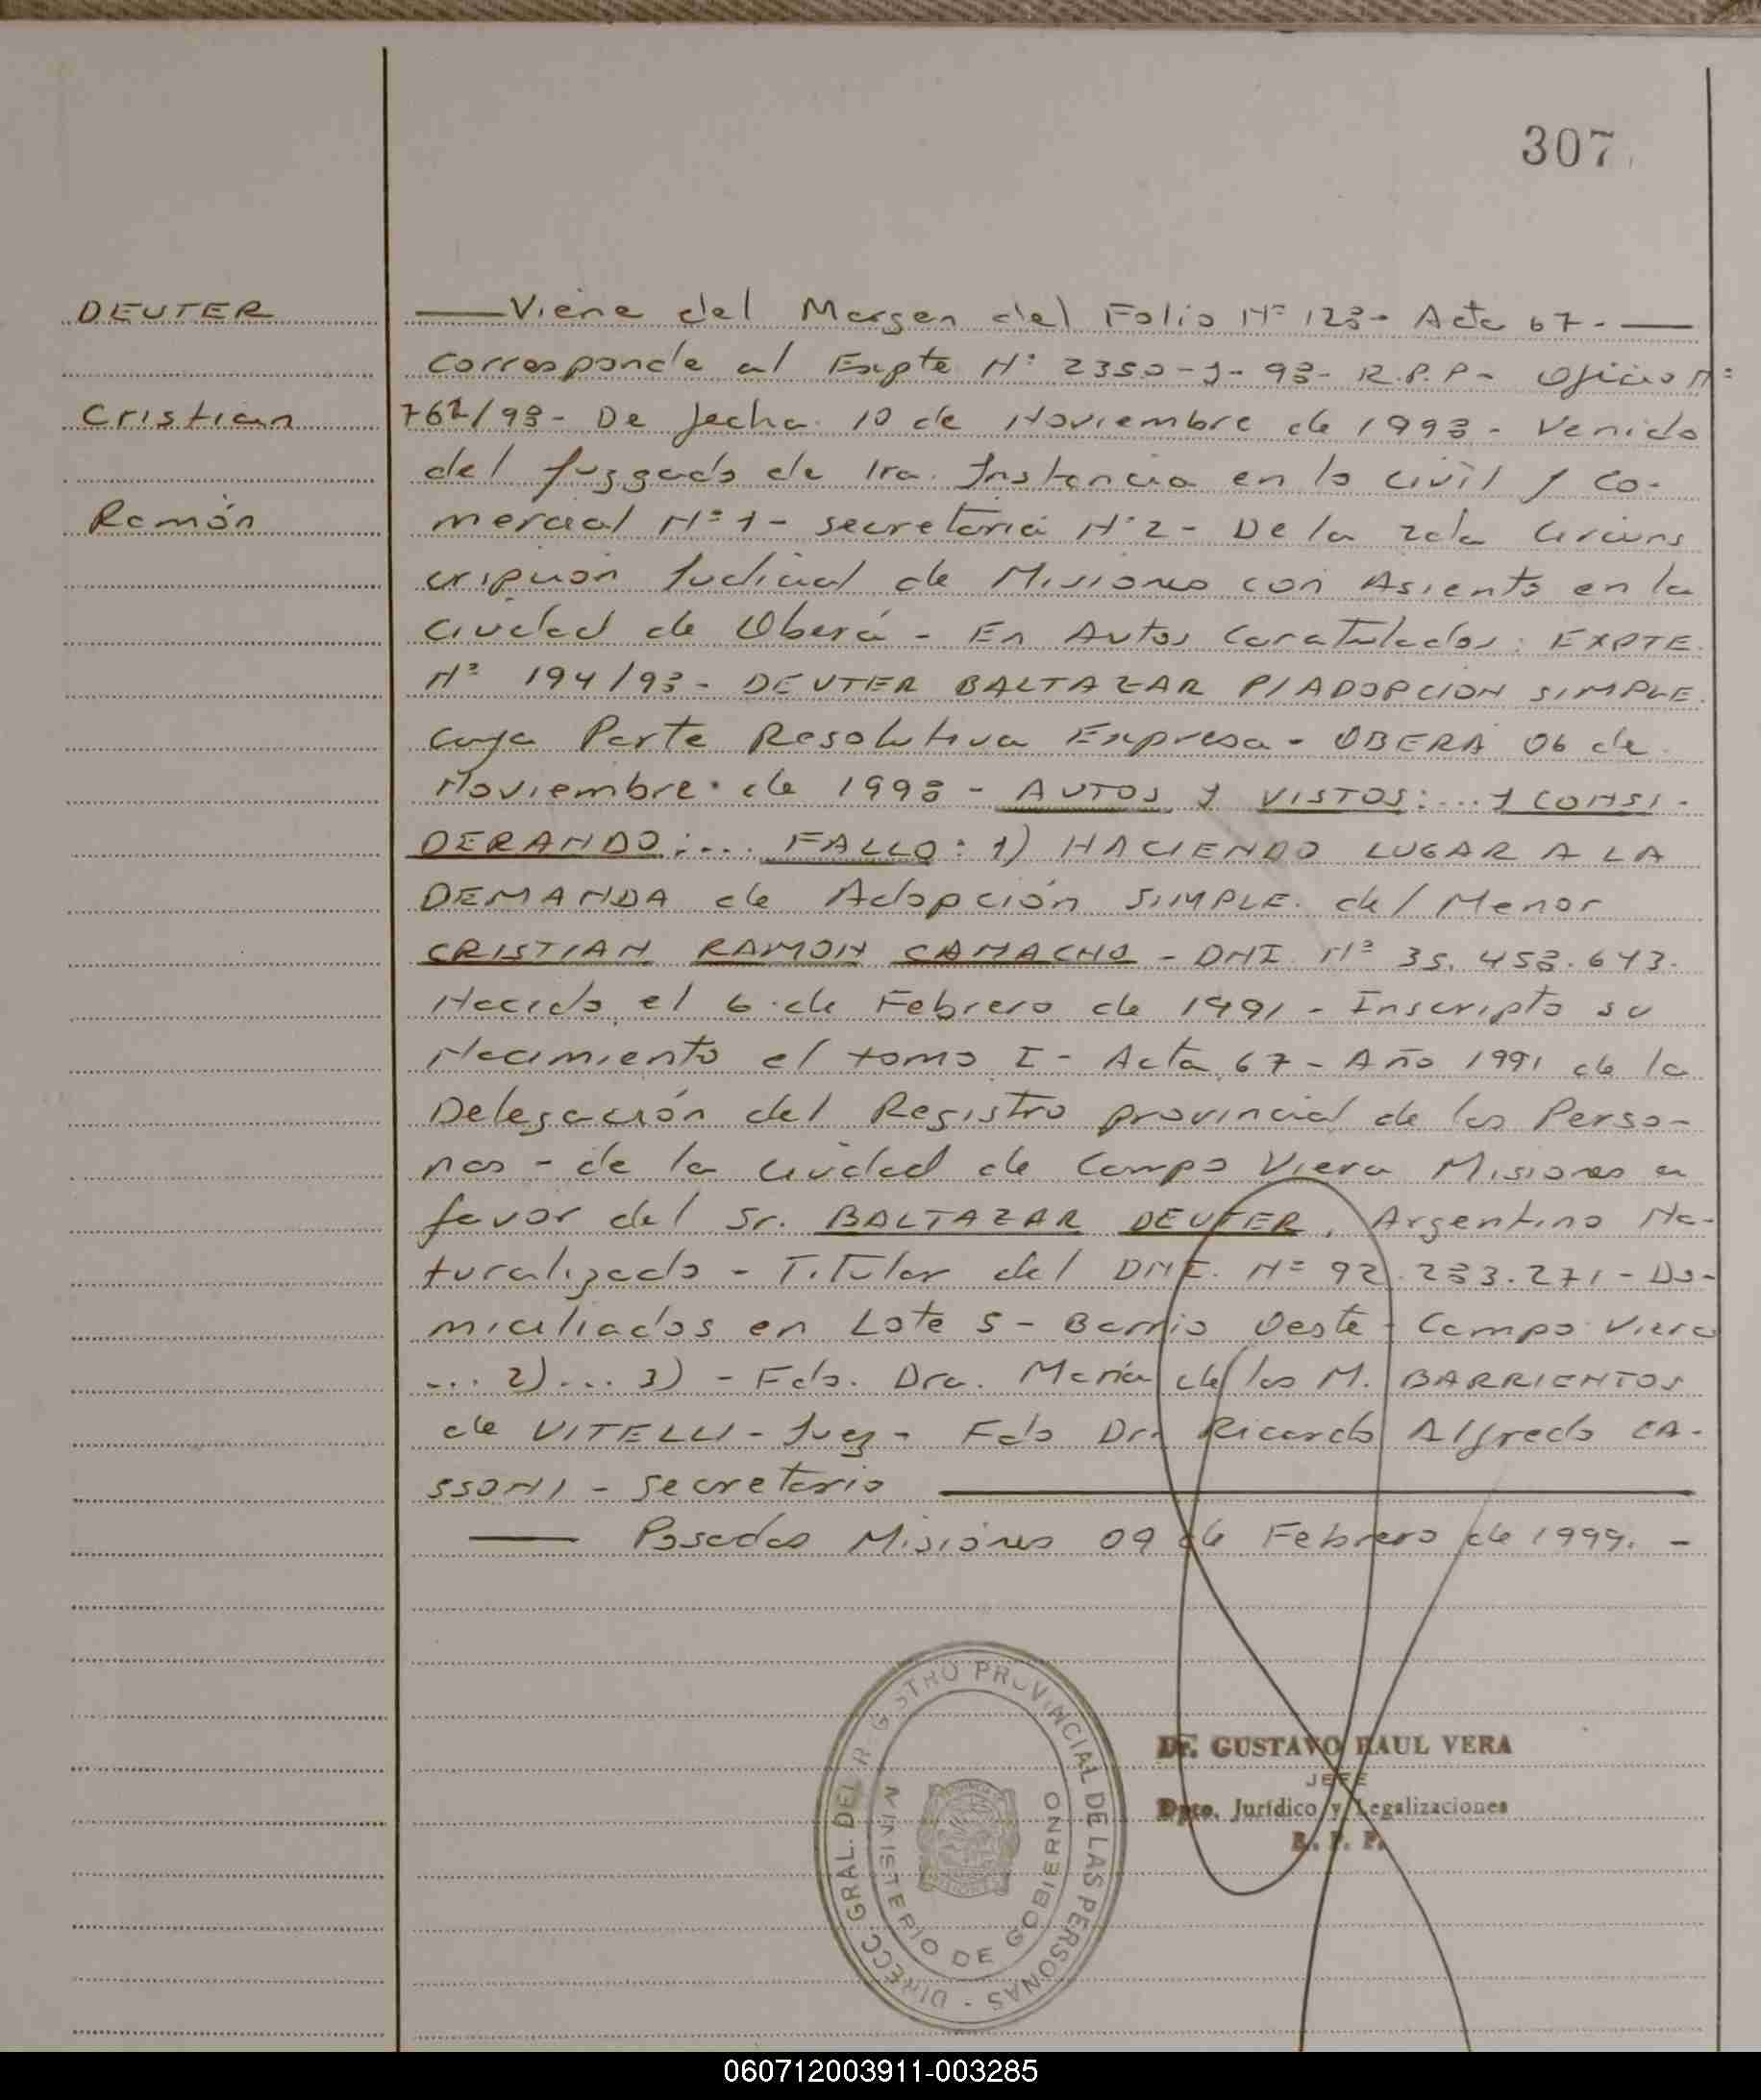 307
DEUTER
Cristian
Ramón
Viene del Margen del Folio Nº 123- Acta 67.-
corresponde al Expte Nº 2350-J-93- R.P.P- Oficio Nº
762/93- De fecha 10 de Noviembre de 1993- Venido
del Juzgado de 1ra. Instancia en lo civil y Co-
mercial Nº 1- secretaria Nº 2- De la 2da Circuns
cripción Judicial de Misiones con Asiento en la
ciudad de Oberá- En Autos Caratulados: EXPTE.
Nº 194/93- DEUTER BALTAZAR P/ADOPCION SIMPLE.
cuya Parte Resolutiva Expresa- OBERA 06 de
Noviembre de 1993 - AUTOS Y VISTOS:... Y CONSI-
DERANDO:... FALLO: 1) HACIENDO LUGAR A LA
DEMANDA de Adopción SIMPLE. del Menor
CRISTIAN RAMON CAMACHO - DNI Nº 35.453.643.
Nacido el 6 de Febrero de 1991- Inscripto su
Nacimiento el tomo I- Acta 67- Año 1991 de la
Delegación del Registro provincial de las Perso-
nas - de la ciudad de Campo Viera Misiones a
favor del Sr. BALTAZAR DEUTER, Argentino Na-
turalizado - Titular del DNI. Nº 92.233.271- Do-
miciliados en Lote 5 - Barrio Oeste - Campo Viera
... 2)... 3) - Fdo. Dra. María de las M. BARRIENTOS
de VITELLI- Juez- Fdo Dr. Ricardo Alfredo CA-
SSONI - Secretario
Posadas Misiones 09 de Febrero de 1999. -
DIRECC GRAL. DEL R GISTRO PROVINCIAL DE LAS PERSONAS -
MINISTERIO DE GOBIERNO
Dr. GUSTAVO RAUL VERA
JEFE
Dpto. Jurídico y Legalizaciones
R. P. P.
060712003911-003285